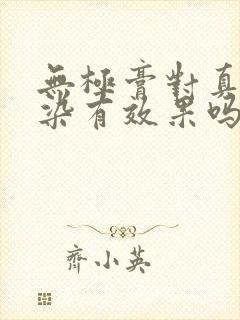 無極膏對真
染有效果吗
齊小英